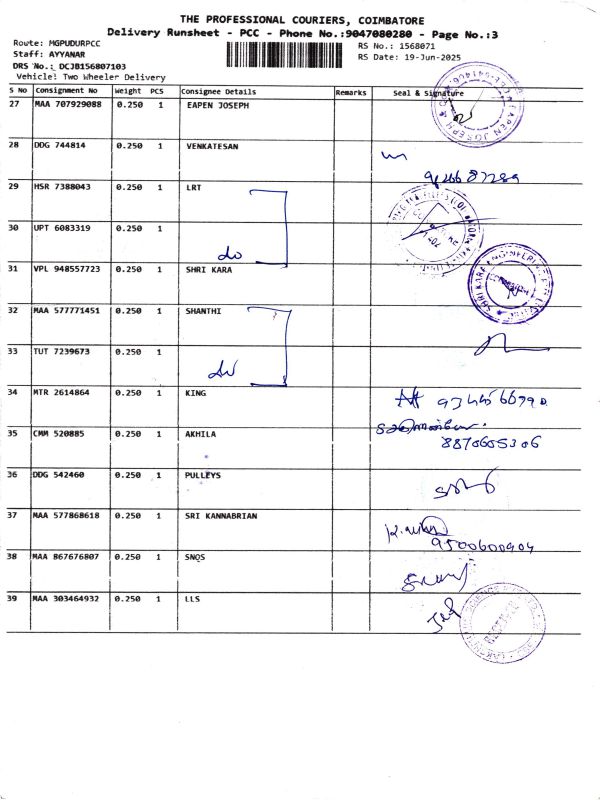 THE PROFESSIONAL COURIERS, COIMBATORE
Delivery Runsheet - PCC - Phone No.:9047080280 - Page No.:3
Route: MGPUDURPCC
RS No.: 1568071
Staff: AYYANAR
RS Date: 19-Jun-2025
DRS No.: DCJB156807103
Vehicle: Two Wheeler Delivery
S No Consignment No Weight PCS Consignee Details Remarks Seal & Signature
27 MAA 707929088 0.250 1 EAPEN JOSEPH
28 DDG 744814 0.250 1 VENKATESAN
29 HSR 7388043 0.250 1 LRT
30 UPT 6083319 0.250 1
do
31 VPL 948557723 0.250 1 SHRI KARA
32 MAA 577771451 0.250 1 SHANTHI
33 TUT 7239673 0.250 1
do
34 MTR 2614864 0.250 1 KING
35 CMM 520885 0.250 1 AKHILA
8870605306
36 DDG 542460 0.250 1 PULLEYS
37 MAA 577868618 0.250 1 SRI KANNABRIAN
9500600904
38 MAA 867676807 0.250 1 SNQS
39 MAA 303464932 0.250 1 LLS